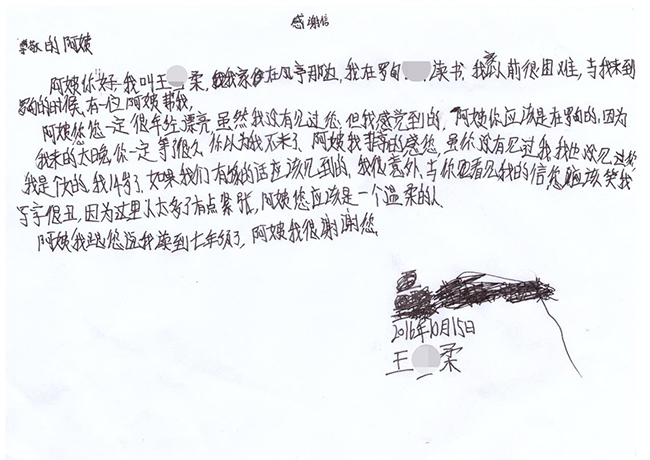 感谢信
尊敬的阿姨
阿姨你好 我叫王 柔,我家住在风亭那边,我在罗甸 读书,我家以前很困难,当我来到
罗甸的时候,有一位阿姨帮我,
阿姨您一定很年轻漂亮,虽然我没有见过您,但我感觉到的,阿姨你应该是在罗甸的,因为
我来的太晚,你一定等很久,你以为我不来了,阿姨我非常的感您,虽你没有见过我我也没见过您
我是女的,我14岁了,如果我们有缘的话应该见到的,我很意外,当你看见我的信您应该笑我
写字很丑,因为这里人太多了有点紧张,阿姨您应该是一个温柔的人
阿姨我跟您说我读到七年级了,阿姨我很谢谢您.
2016年10月15日
王 柔